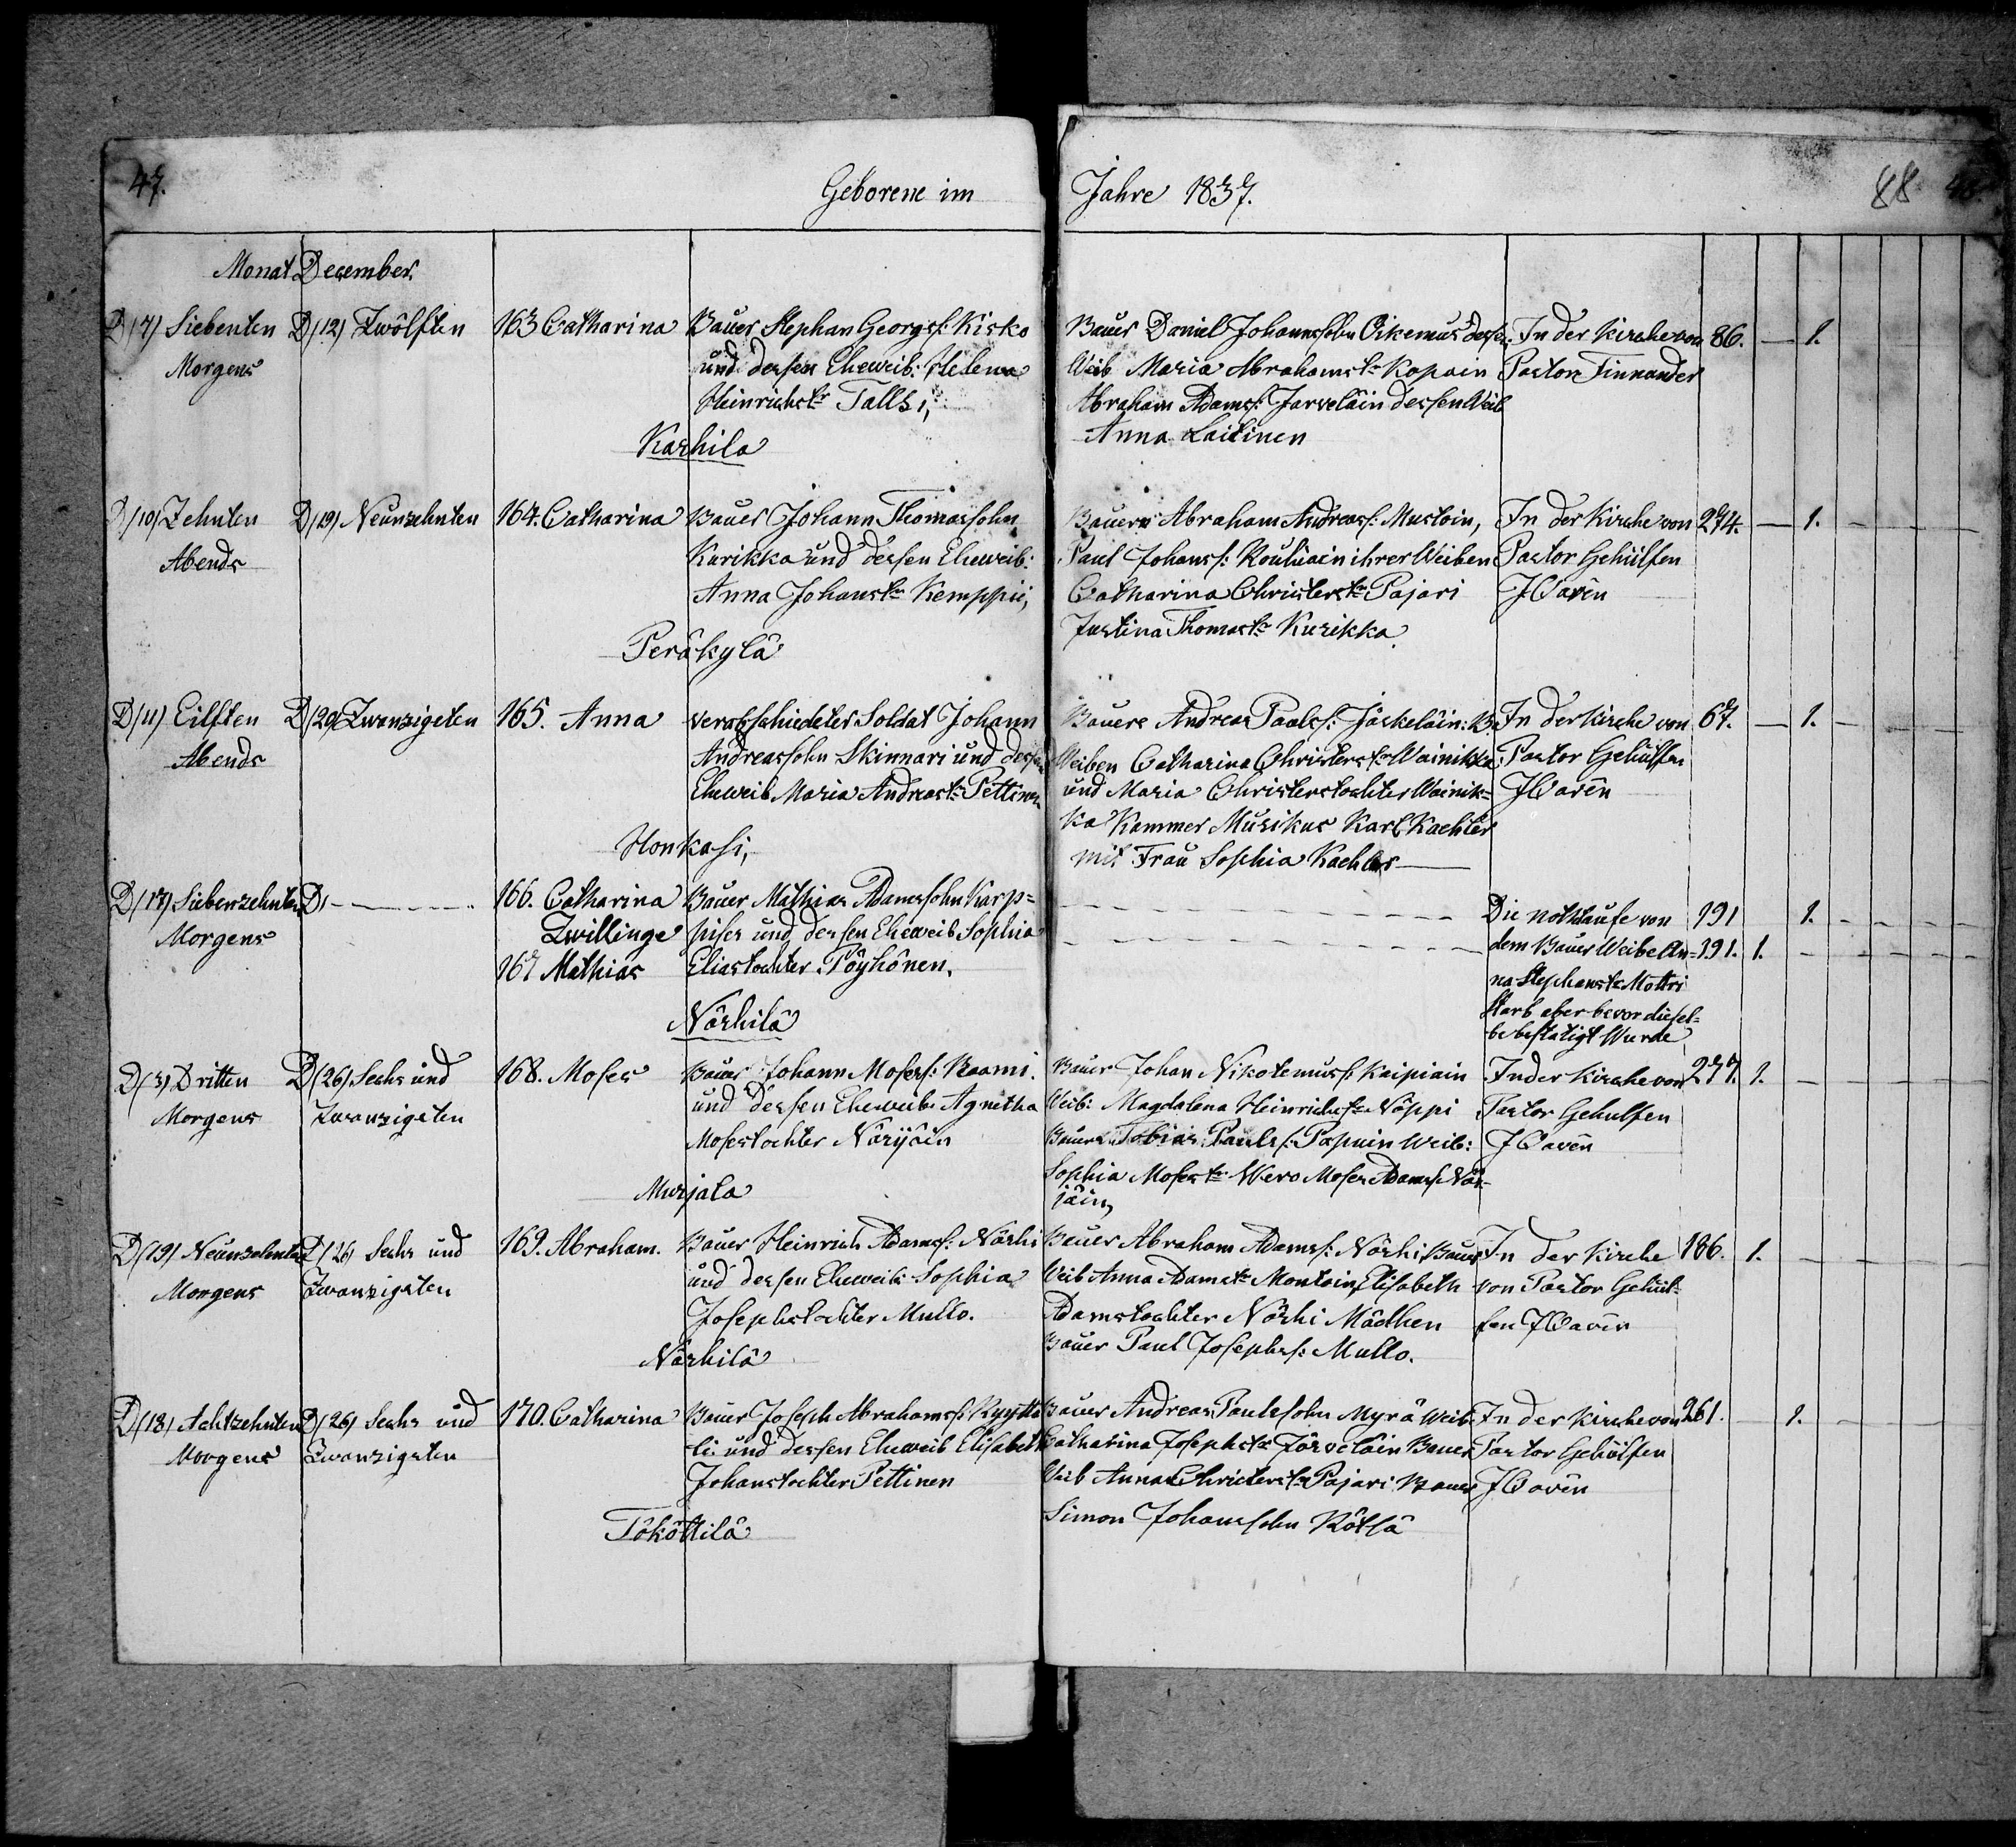 47.
Geborene im
Jahre 1837.
88
Monat December.
D (7) Siebenten D (12) Zwölften 163 Catharina Bauer Stephan Georgs: Kisko
Morgens und dessen Eheweib: Helena
Heinrichstr Talls,
Karhila
Bauer Daniel Johannssohn Oikemus dessen In der Kirche von 86. — 1.
Weib Maria Abrahamstr Kopain Pastor Finnander
Abraham Adams: Jarveläin dessen Weib
Anna Laitinen
D (10) Zehnten D (19) Neunzehnten 164. Catharina Bauer Johann Thomassohn
Abends Kurikka und dessen Eheweib:
Anna Johanstr Kemppii,
Peräkylä
Bauern Abraham Andreas: Mustoin, In der Kirche von 274. — 1.
Paul Johans: ihrer Weiben Pastor Gehülfen
Catharina Christerstr Pajari J Cavén
Justina Thomastr Kurikka
D (11) Eilften D (20) Zwanzigsten 165. Anna verabschiedeter Soldat Johann
Abends Andreassohn Skinnari und dessen
Eheweib Maria Andreastr Pettinen
Honkasi,
Bauere Andreas Pauls: Jäskeläin: B. In der Kirche von 67. — 1.
Weiben Catharina Christerstr Wainikka Pastor Gehülfen
und Maria Christerstochter Wainik= J Cavén
ka Kammer Musikus Karl Kaehler
mit Frau Sophia Kaehler
D (17) Siebenzehnten D, 166. Catharina Bauer Mathias Adamssohn Karp=
Morgens Zwillinge piser und dessen Eheweib Sophia
167 Mathias Eliastochter Pöyhönen.
Närhilä
Die nothtaufe von 191 1.
dem Bauer Weibe An= 191. 1.
na Stephanstr Mottri
starb aber bevor diesel=
be bestätigt Wurde
D (3) Dritten D (26) Sechs und 168. Moses Bauer Johann Moses: Raami.
Morgens Zwanzigsten und dessen Eheweib Agnetha
Mosestochter Näryäin
Murjala
Bauer Johan Nikotemus: Kaipiain In der Kirche von 277. 1.
Weib: Magdalena Heinrichstr Näppi Pastor Gehulfen
Bauer Tobias Pauls: Papuin Weib: J Cavén
Sophia Mosestr Wero Moses Adams: När-
jäin,
D (19) Neunzehnten D (26) Sechs und 169. Abraham. Bauer Heinrich Adams: Närhi
Morgens Zwanzigsten und dessen Eheweib Sophia
Josephstochter Mullo.
Närhilä
Bauer Abraham Adams: Närhi, Bauer In der Kirche 186. 1.
Weib Anna Adamstr Montoin, Elisabeth von Pastor Gehül=
Adamstochter Närhi Mädhen fen J Cavén
Bauer Paul Josephs: Mullo.
D (18) Achtzehnten D (26) Sechs und 170. Catharina Bauer Joseph Abrahams: Ryyttä
Morgens Zwanzigsten li und dessen Eheweib Elisabeth
Johanstochter Pettinen
Tököttilä
Bauer Andreas Paulssohn Myrä Weib In der Kirche von 261. — 1.
Catharina Josephstr Järveläin Bauer Pastor Gehülfen
Weib Anna Christerstr Pajari Bauer J Cavén
Simon Johanssohn Rötsä